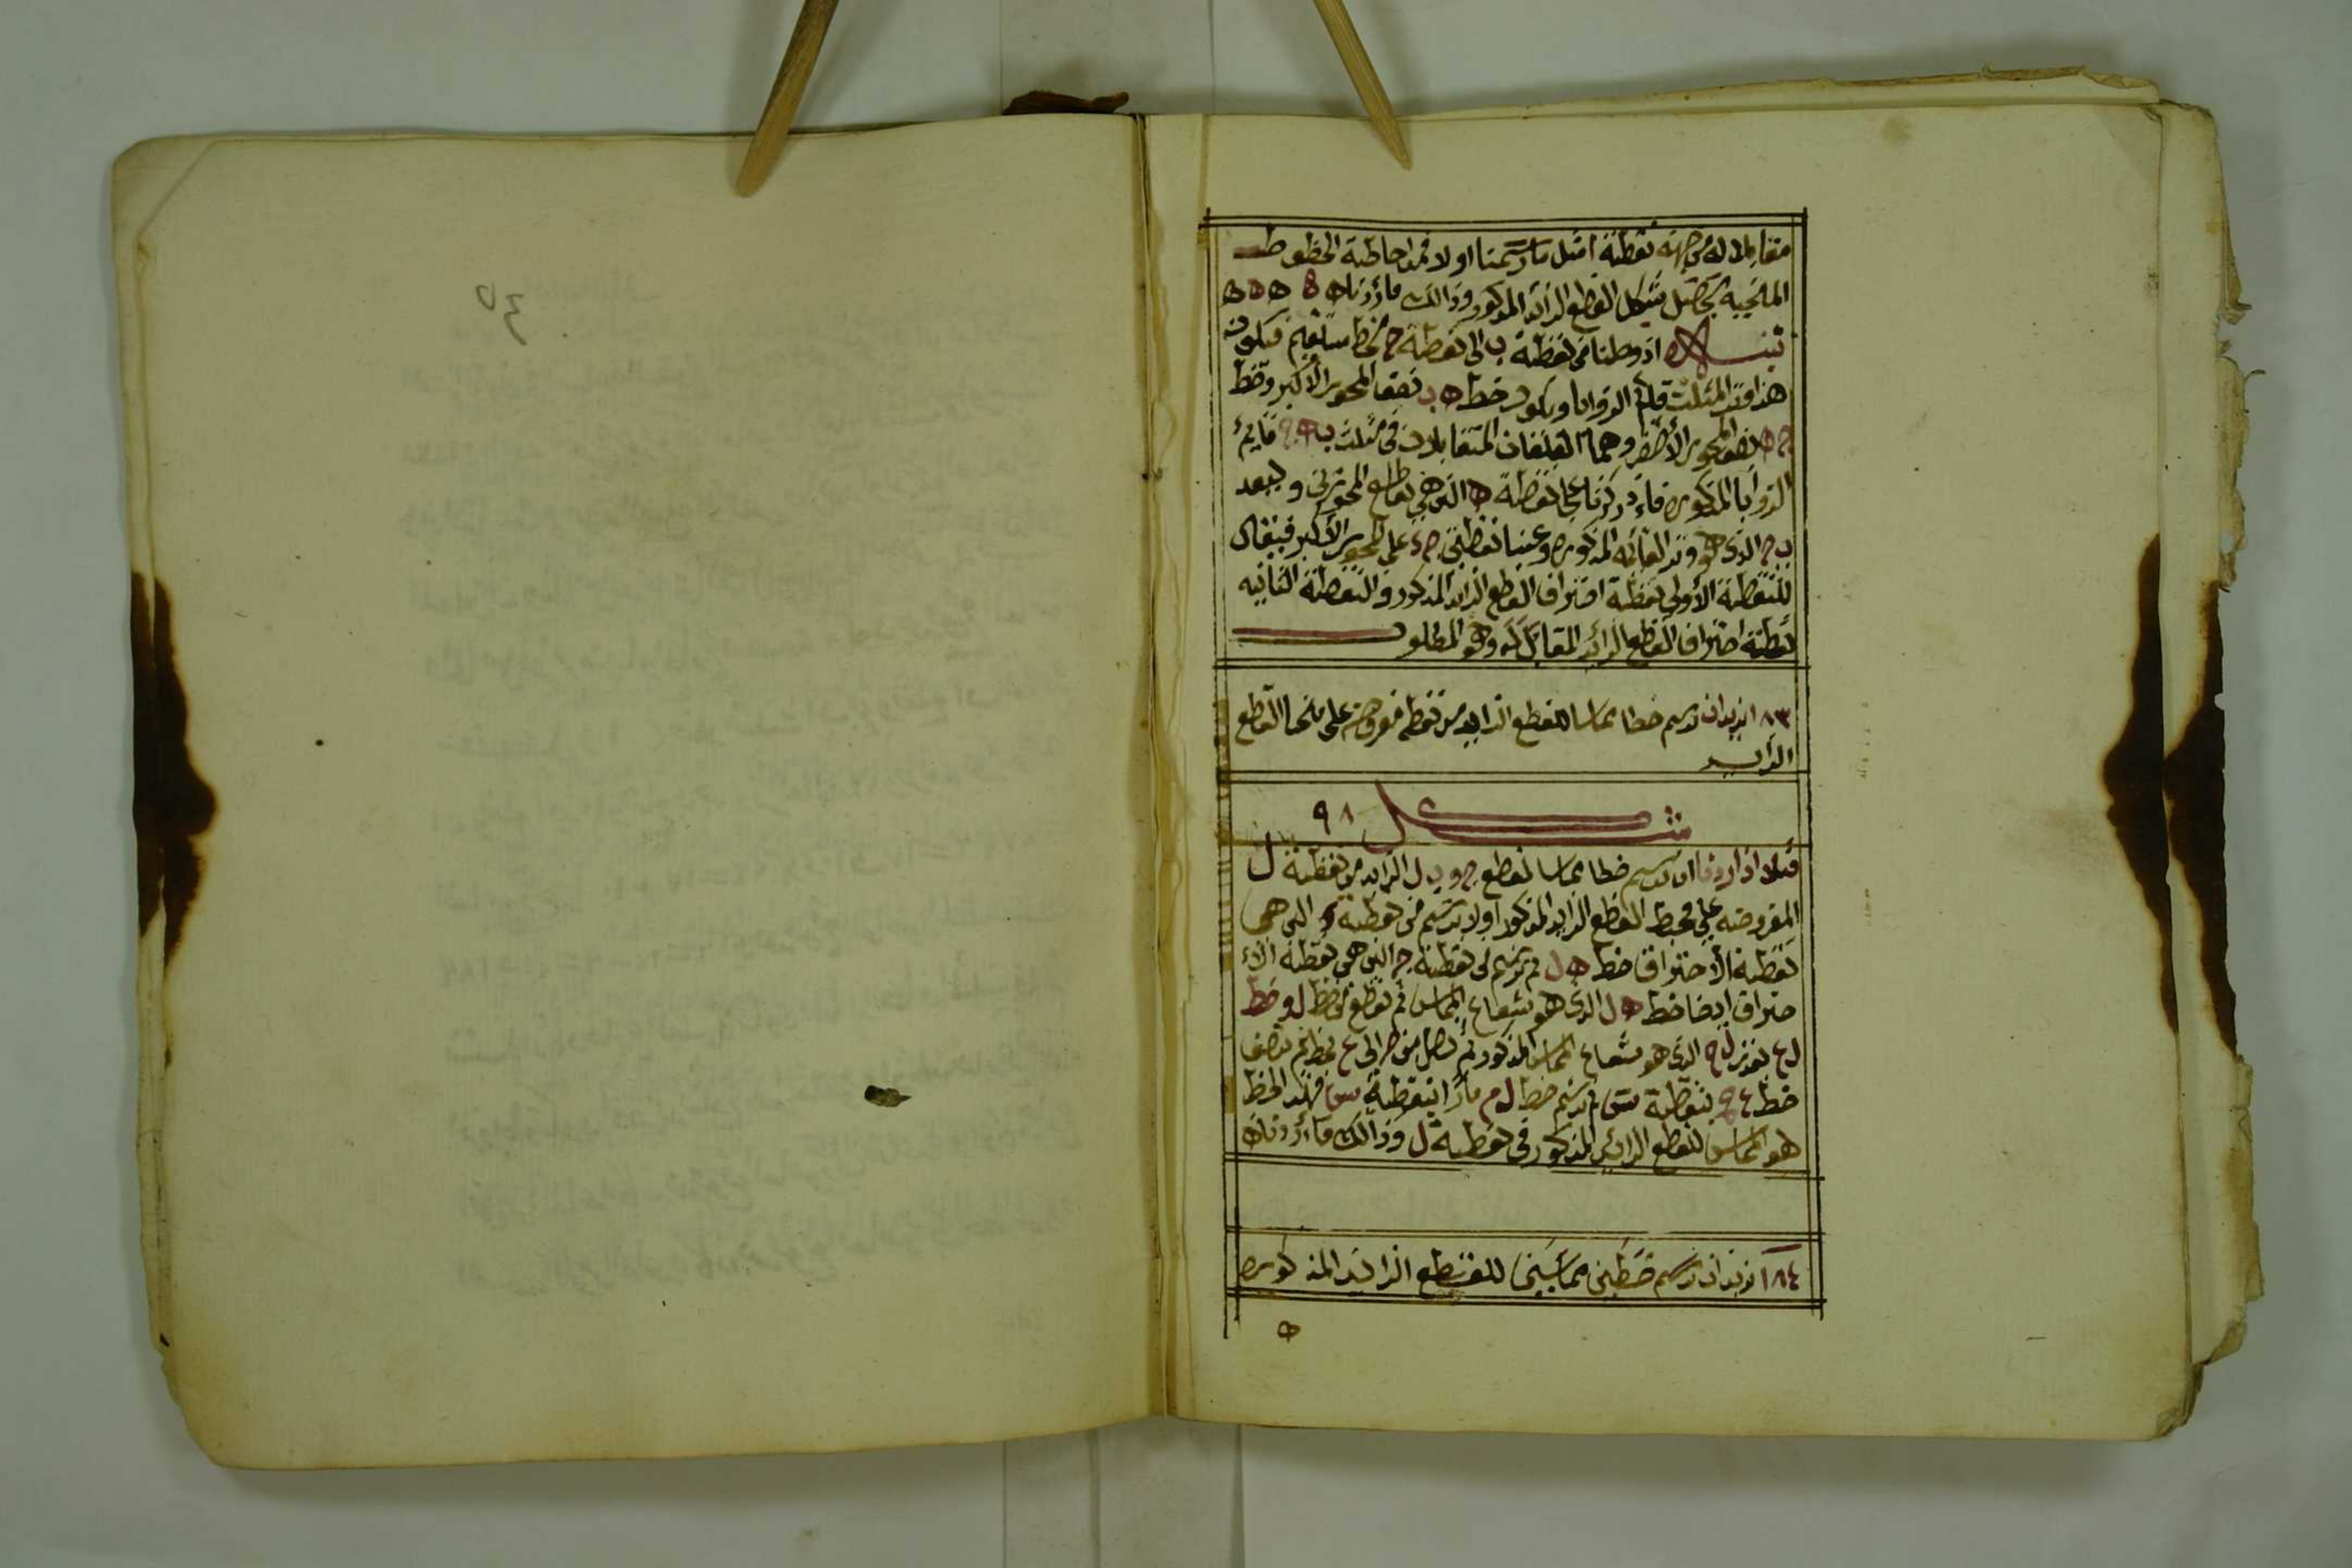 مقابلا له من جهة نقطة امثل ما رسمنا اولا فمد احاطة الخطوط
المنحيه يحصل شكل القطع الزايد المذكور وذالك ما أردناه ه ه ه ه
تنبيه اذ وصلنا من نقطة ب الى نقطة ج بخط مستقيم فيكون
هذا وتد المثلث قايم الزوايا ويكون خط ه ب نصف المحور الأكبر وخط
ج ه نصف المحور الأصغر وهما الضلعان المتقابلان في مثلث ب ه ج قايم
الزوايا المذكوره فاذ ركزنا على نقطة ه التي هي تقاطع المحورين وببعد
ب ج الذي هو وتد القائمه المذكوره وعينا نقطتي ج ء على المحور الأكبر فيقال
للنقطة الأولى نقطة احتراق القطع الزايد المذكور والنقطة الثانيه
نقطة احتراق القطع الزائد المقابل له وهو المطلوب
١٨٣ نريد ان نرسم خطا مماسا للقطع الزايد من نقطه مفروضه على منحنا القطع
الزايد
شكل ٩٨
مثلا اذا اردنا ان نرسم خطا مماسا لقطع ج و ب ل الزايد من نقطة ل
المفروضه على محيط القطع الزايد المذكور اولا نرسم من نقطة و التي هي
نقطة الأحتراق خط ه ل ثم نرسم من نقطة ج التي هي نقطة الأ
حتراق ايضا خط ه ل الذي هو شعاع المماس ثم نقطع من خط ل و خط
ل ع بقدر ل ج الذي هو شعاع المماس المذكور ثم نصل من ج الى ع بخط ثم ننصف
خط ع ج بنقطة س ثم نرسم خط ل م مارا بنقطة س فهذا الخط
هو المماس للقطع الزائد المذكور في نقطة ل وذالك ما أردناه
١٨٤ نريد ان نرسم خطين مماسين للقطع الزايد المذكوره
ه